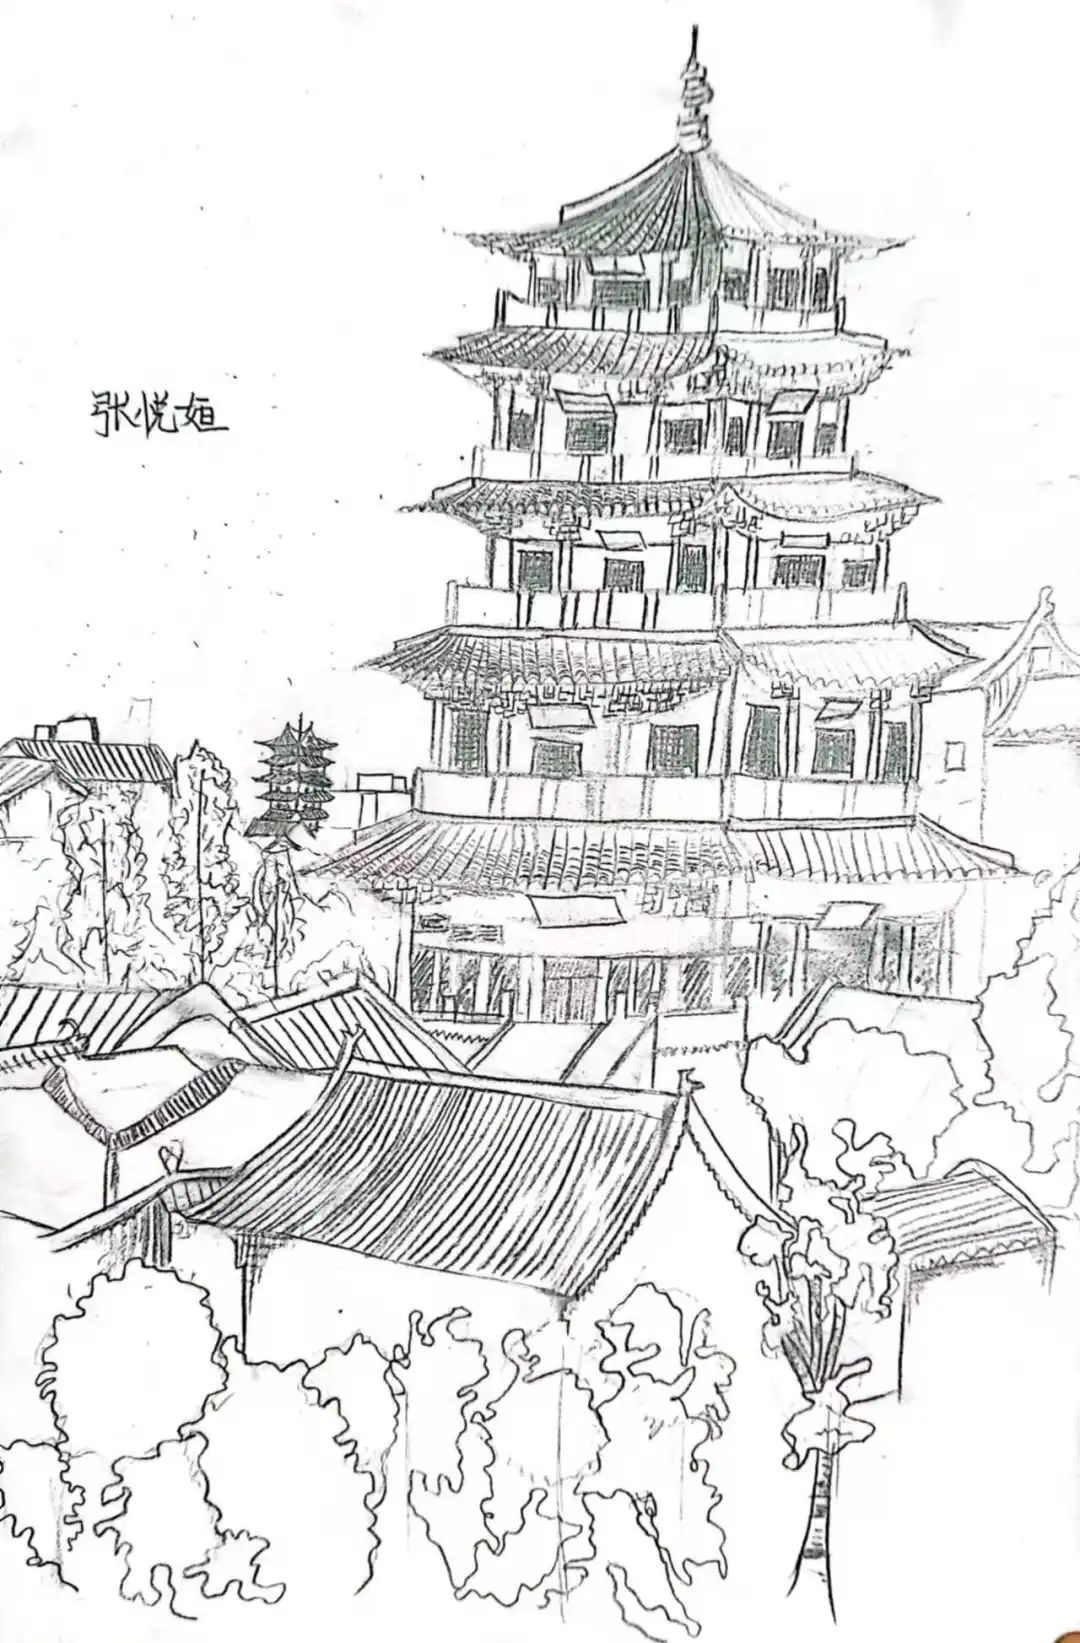 张悦姮